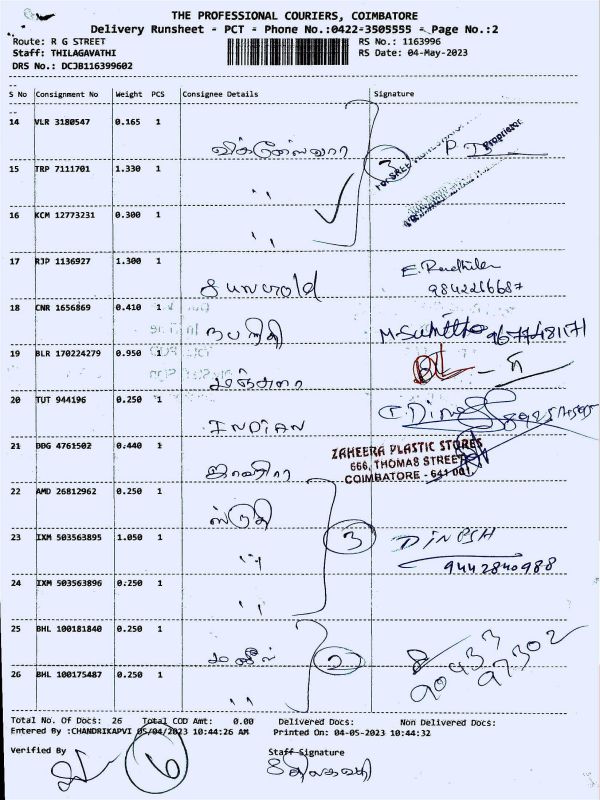 THE PROFESSIONAL COURIERS, COIMBATORE
Delivery Runsheet - PCT - Phone No.:0422-3505555 - Page No.:2
Route: R G STREET RS No.: 1163996
Staff: THILAGAVATHI RS Date: 04-May-2023
DRS No.: DCJB116399602
S No Consignment No Weight PCS Consignee Details Signature
14 VLR 3180547 0.165 1
Proprietor
15 TRP 7111701 1.330 1 " 3
16 KCM 12773231 0.300 1 "
17 RJP 1136927 1.300 1
9842266687
18 CNR 1656869 0.410 1 நபநிதி
19 BLR 170224279 0.950 1
20 TUT 944196 0.250 1 INDIAN
21 DDG 4761502 0.440 1
ZAHEERA PLASTIC STORES
666, THOMAS STREET
COIMBATORE - 641 001.
22 AMD 26812962 0.250 1 ஸ்ருதி
23 IXM 503563895 1.050 1 " 3 DINESH
9442840988
24 IXM 503563896 0.250 1 "
25 BHL 100181840 0.250 1 2
90433
97302
26 BHL 100175487 0.250 1 "
Total No. Of Docs: 26 Total COD Amt: 0.00 Delivered Docs: Non Delivered Docs:
Entered By :CHANDRIKAPVI 05/04/2023 10:44:26 AM Printed On: 04-05-2023 10:44:32
Verified By Staff Signature
6 திலகவதி